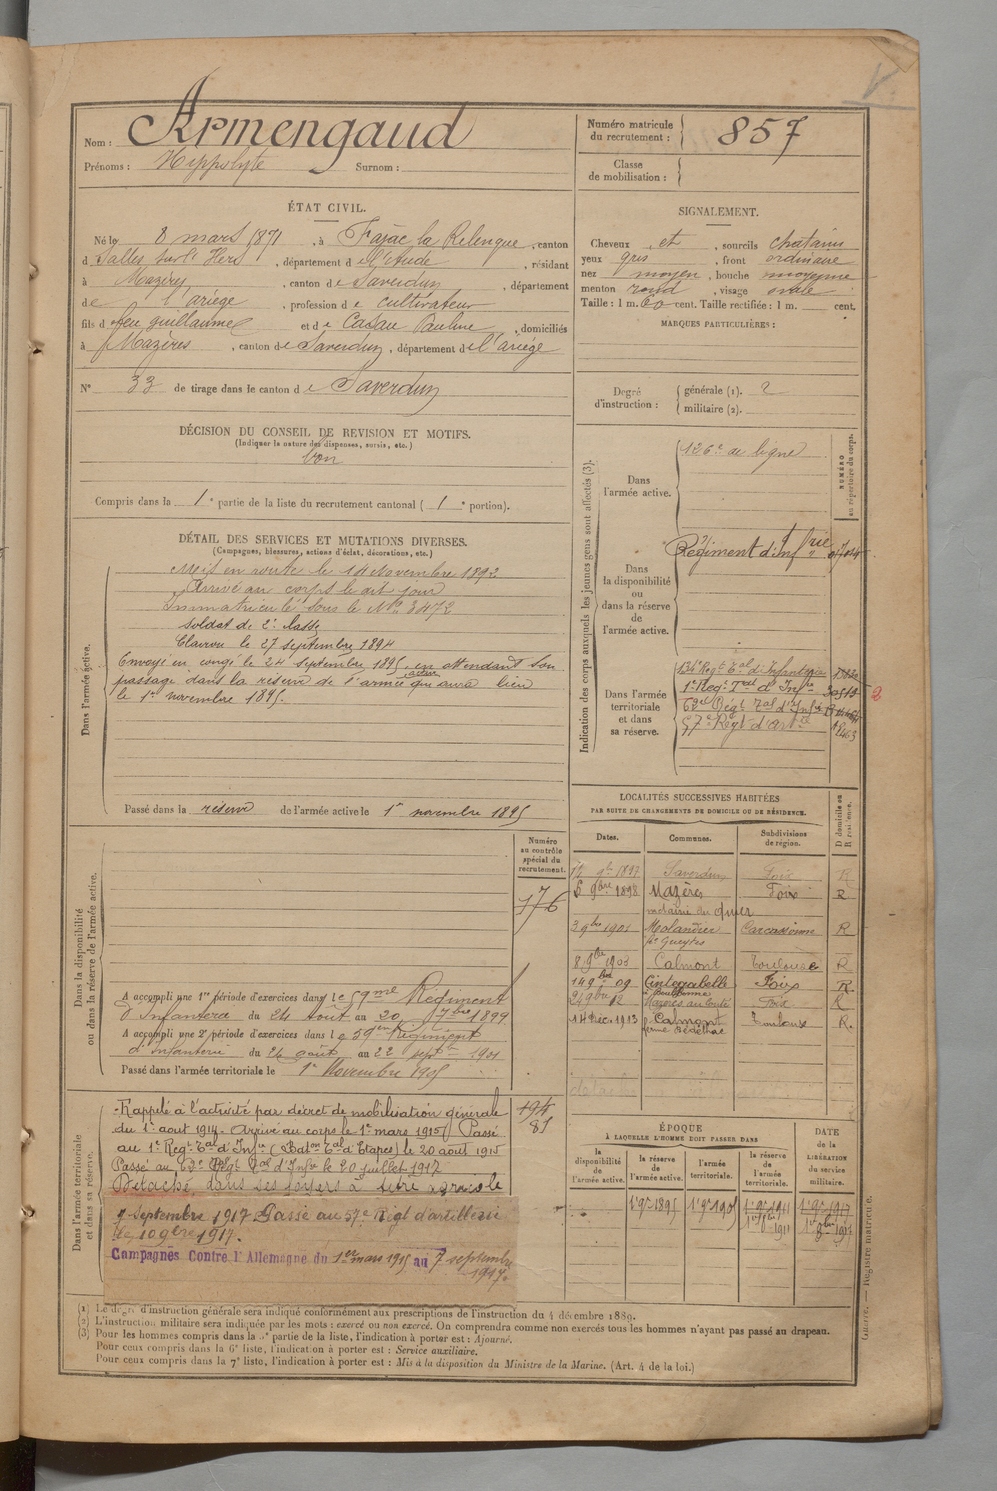 Nom : Armengaud
Prénoms : Hippolyte Surnom :
Numéro matricule du recrutement : 857
Classe de mobilisation :
ÉTAT CIVIL.
Né le 8 mars 1871, à Fajac la Relenque, canton
d Salles sur l'Hers, département de l'Aude, résidant
à Mazères, canton de Saverdun, département
de l'ariège, profession de cultivateur
fils d feu guillaume et de Casau Pauline, domiciliés
à Mazères, canton de Saverdun, département de l'ariège
N° 33 de tirage dans le canton de Saverdun
DÉCISION DU CONSEIL DE REVISION ET MOTIFS.
(Indiquer la nature des dispenses, sursis, etc.)
bon
Compris dans la 1e partie de la liste du recrutement cantonal (1e portion).
SIGNALEMENT.
Cheveux et, sourcils chatains
yeux gris, front ordinaire
nez moyen, bouche moyenne
menton rond, visage ovale
Taille : 1 m. 60 cent. Taille rectifiée : 1 m. cent.
MARQUES PARTICULIÈRES :
Degré d'instruction : générale (1). 2
militaire (2).
DÉTAIL DES SERVICES ET MUTATIONS DIVERSES.
(Campagnes, blessures, actions d'éclat, décorations, etc.)
Dans l'armée active.
Mis en route le 14 Novembre 1892
Arrivé au corps le dit jour
Immatriculé sous le N° 3472
Soldat de 2e classe
Clairon le 27 septembre 1894
Envoyé en congé le 24 septembre 1895, en attendant son
passage dans la réserve de l'armée active qui aura lieu
le 1er novembre 1895.
Passé dans la réserve de l'armée active le 1er novembre 1895
Indication des corps auxquels les jeunes gens sont affectés (3).
NUMÉRO au répertoire du corps.
Dans l'armée active.
126e de ligne
Dans la disponibilité ou dans la réserve de l'armée active.
Régiment d'Infrie
Dans l'armée territoriale et dans sa réserve.
134e Regt Tal d'Infanterie
1er Regt Tal d'Infie
62e Régt Tal d'Infie
57e Régt d'Artie
2
Dans la disponibilité ou dans la réserve de l'armée active.
Numéro au contrôle spécial du recrutement.
776
A accompli une 1re période d'exercices dans le 59me Régiment
d'Infanterie du 24 Août au 20 7bre 1899
A accompli une 2e période d'exercices dans le 59e Régiment
d'Infanterie du 26 août au 22 septbre 1901
Passé dans l'armée territoriale le 1er Novembre 1905
LOCALITÉS SUCCESSIVES HABITÉES
PAR SUITE DE CHANGEMENTS DE DOMICILE OU DE RÉSIDENCE.
Dates. Communes. Subdivisions de région. D domicile ou R résidence.
9bre 1897 Saverdun Foix R
6 9bre 1898 Mazères Foix R
métairie du
3 9bre 1901 Molandier Carcassonne R
8 9bre 1903 Calmont Toulouse R
14 9bre 09 Cintegabelle Foix R
12 Mazères Foix R
14 Déc. 1913 Calmont Toulouse R.
Dans l'armée territoriale et dans sa réserve.
Rappelé à l'activité par décret de mobilisation générale
du 1er aout 1914. Arrivé au corps le 1er mars 1915. Passé
au 1er Regt Tal d'Infie (Baton Tal d'Etapes) le 20 août 1915
Passé au 62e Régt Tal d'Infie le 20 juillet 1917
Détaché dans ses foyers à titre agricole
7 septembre 1917 Passé au 57e Régt d'artillerie
le 10 9bre 1917.
Campagnes Contre l'Allemagne du 1er mars 1915 au 7 septembre
1917.
ÉPOQUE
À LAQUELLE L'HOMME DOIT PASSER DANS
la disponibilité de l'armée active. la réserve de l'armée active. l'armée territoriale. la réserve de l'armée territoriale. DATE de la LIBÉRATION du service militaire.
1er 9bre 1895 1er 9bre 1905 1er 9bre 1911 1er 9bre 1917
(1) Le degré d'instruction générale sera indiqué conformément aux prescriptions de l'instruction du 4 décembre 1889.
(2) L'instruction militaire sera indiquée par les mots : exercé ou non exercé. On comprendra comme non exercés tous les hommes n'ayant pas passé au drapeau.
(3) Pour les hommes compris dans la 5e partie de la liste, l'indication à porter est : Ajourné.
Pour ceux compris dans la 6e liste, l'indication à porter est : Service auxiliaire.
Pour ceux compris dans la 7e liste, l'indication à porter est : Mis à la disposition du Ministre de la Marine. (Art. 4 de la loi.)
Registre matricule.